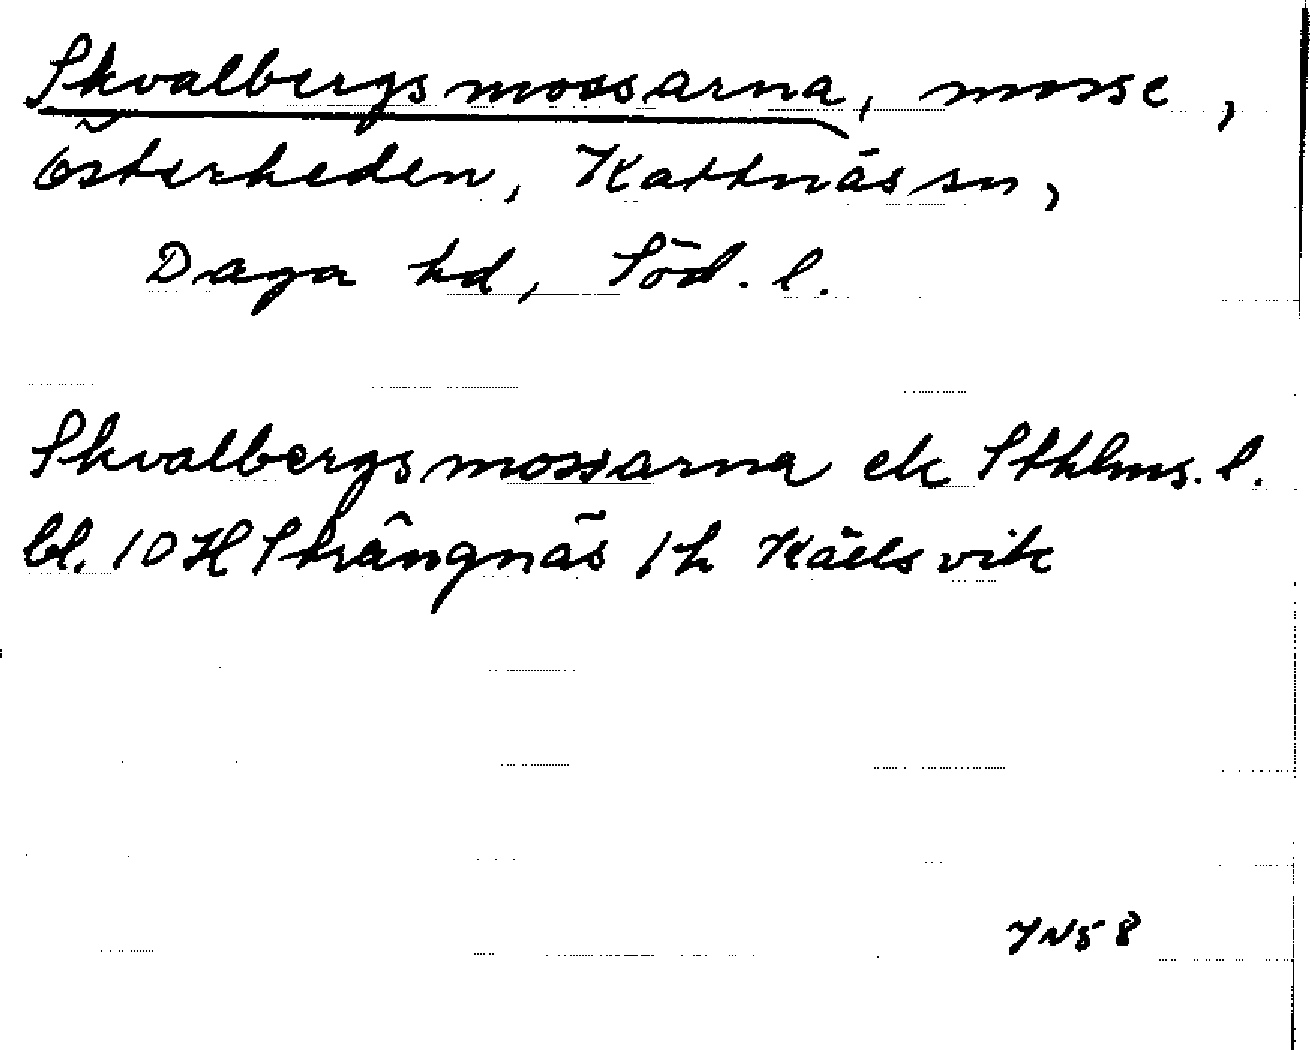 Skvalbergsmossarna, mosse,
Österheden, Kattnäs sn,
Daga hd, Söd. l.
Skvalbergsmossarna ek Sthlms. l.
bl. 10 H Strängnäs 1h Källsvik
YN58